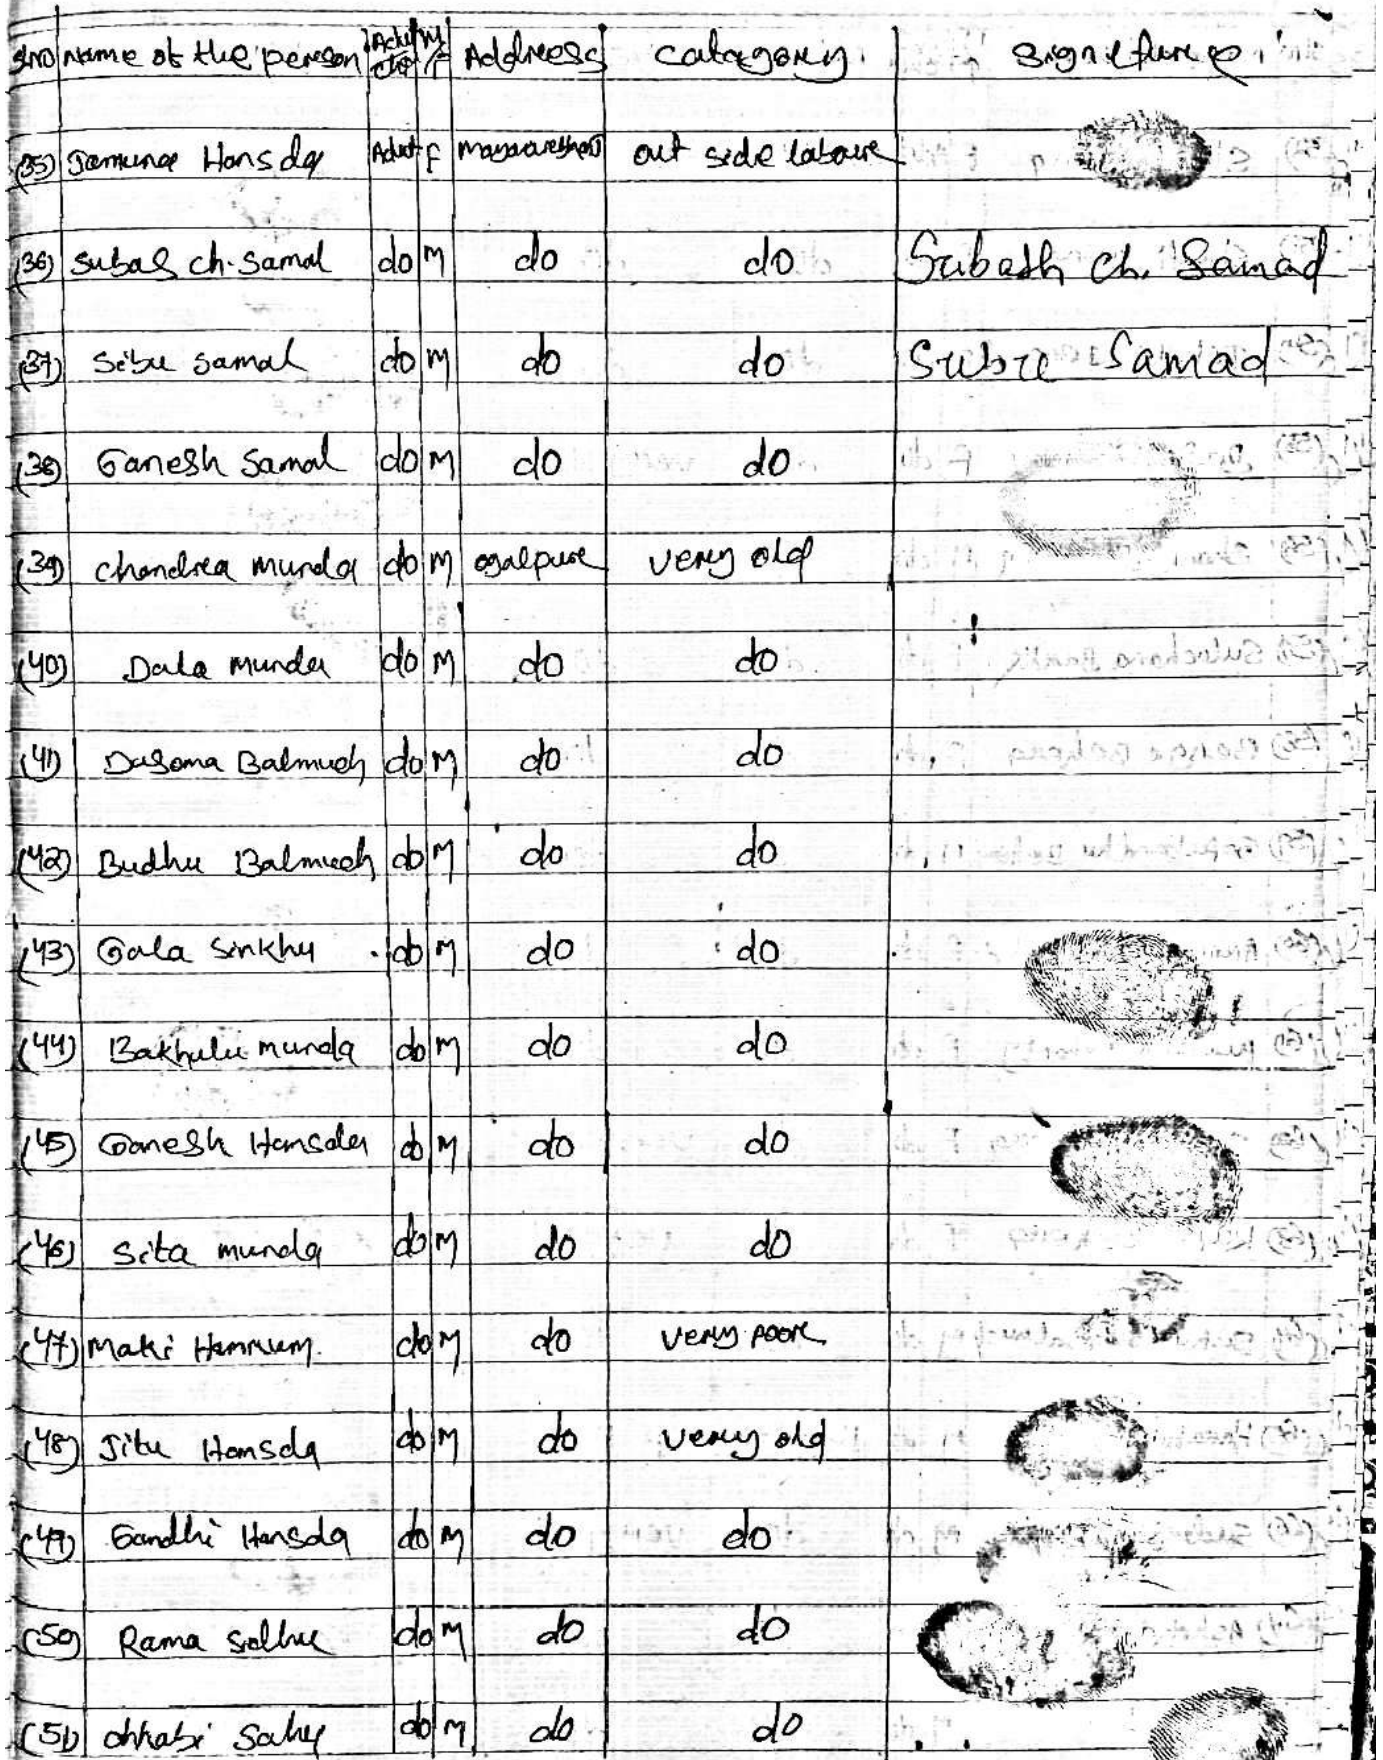 Sl.no Name of the person Adult/Chi M/F Address catagory signature
(35) Jamuna Hansda Adult F out side laboure
(36) Subas ch. Samal do M do do Subash Ch. Samad
(37) Sibu Samal do M do do Subu Samad
(38) Ganesh Samal do M do do
(39) Chandra Munda do M ogalpur very old
(40) Dala Munda do M do do
(41) Dasama Balmuch do M do do
(42) Budhu Balmuch do M do do
(43) Gala Sinkhu do M do do
(44) Bakhulu munda do M do do
(45) Ganesh Hansda do M do do
(46) Sita munda do M do do
(47) Maki Hemrum. do M do very poor
(48) Jitu Hansda do M do very old
(49) Gandhi Hansda do M do do
(50) Rama do M do do
(51) chhabi Sahu do M do do